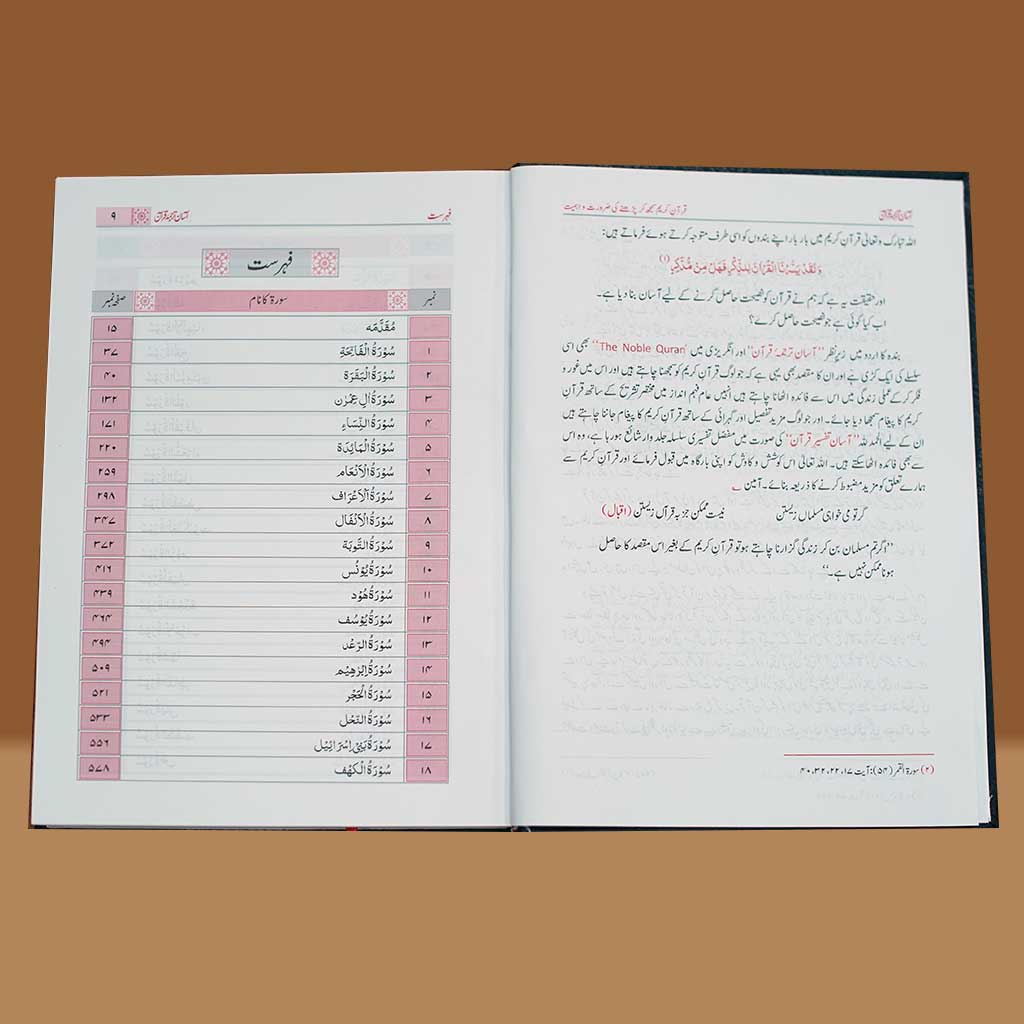 آسان ترجمہ قرآن
قرآنِ کریم سمجھ کر پڑھنے کی ضرورت و اہمیت
اللہ تبارک و تعالیٰ قرآنِ کریم میں بار بار اپنے بندوں کو اسی طرف متوجہ کرتے ہوئے فرماتے ہیں:
وَلَقَدْ يَسَّرْنَا الْقُرْاٰنَ لِلذِّكْرِ فَهَلْ مِنْ مُّدَّكِرٍ (۱)
اور حقیقت یہ ہے کہ ہم نے قرآن کو نصیحت حاصل کرنے کے لیے آسان بنا دیا ہے۔
اب کیا کوئی ہے جو نصیحت حاصل کرے؟
بندہ کا اردو میں زیرِ نظر "آسان ترجمۂ قرآن" اور انگریزی میں "The Noble Quran" بھی اسی
سلسلے کی ایک کڑی ہے اور ان کا مقصد بھی یہی ہے کہ جو لوگ قرآنِ کریم کو سمجھنا چاہتے ہیں اور اس میں غور و
فکر کر کے عملی زندگی میں اس سے فائدہ اٹھانا چاہتے ہیں انہیں عام فہم انداز میں مختصر تشریح کے ساتھ قرآنِ
کریم کا پیغام سمجھا دیا جائے۔ اور جو لوگ مزید تفصیل اور گہرائی کے ساتھ قرآنِ کریم کا پیغام جاننا چاہتے ہیں
ان کے لیے الحمد للہ "آسان تفسیرِ قرآن" کی صورت میں مفصل تفسیری سلسلہ جلد وار شائع ہو رہا ہے، وہ اس
سے بھی فائدہ اٹھا سکتے ہیں۔ اللہ تعالیٰ اس کوشش و کاوش کو اپنی بارگاہ میں قبول فرمائے اور قرآنِ کریم سے
ہمارے تعلق کو مزید مضبوط کرنے کا ذریعہ بنائے۔ آمین
گر تو می خواہی مسلماں زیستن نیست ممکن جز بہ قرآں زیستن (اقبال)
"اگر تم مسلمان بن کر زندگی گزارنا چاہتے ہو تو قرآنِ کریم کے بغیر اس مقصد کا حاصل
ہونا ممکن نہیں ہے۔"
(۲) سورۃ القمر (۵۴): آیت ۱۷، ۲۲، ۳۲، ۴۰
فہرست
آسان ترجمہ قرآن
۹
فہرست
نمبر سورۃ کا نام صفحہ نمبر
مُقَدَّمَه ۱۵
۱ سُوْرَةُ الْفَاتِحَةِ ۳۷
۲ سُوْرَةُ الْبَقَرَة ۴۰
۳ سُوْرَةُ اٰلِ عِمْرٰن ۱۳۲
۴ سُوْرَةُ النِّسَاء ۱۷۱
۵ سُوْرَةُ الْمَائِدَة ۲۲۰
۶ سُوْرَةُ الْاَنْعَام ۲۵۹
۷ سُوْرَةُ الْاَعْرَاف ۲۹۸
۸ سُوْرَةُ الْاَنْفَال ۳۴۷
۹ سُوْرَةُ التَّوْبَة ۳۷۲
۱۰ سُوْرَةُ يُوْنُس ۴۱۶
۱۱ سُوْرَةُ هُوْد ۴۳۹
۱۲ سُوْرَةُ يُوْسُف ۴۶۴
۱۳ سُوْرَةُ الرَّعْد ۴۹۴
۱۴ سُوْرَةُ اِبْرٰهِيْم ۵۰۹
۱۵ سُوْرَةُ الْحَجْر ۵۲۱
۱۶ سُوْرَةُ النَّحْل ۵۳۳
۱۷ سُوْرَةُ بَنِيْ اِسْرَائِيْل ۵۵۶
۱۸ سُوْرَةُ الْكَهْف ۵۷۸